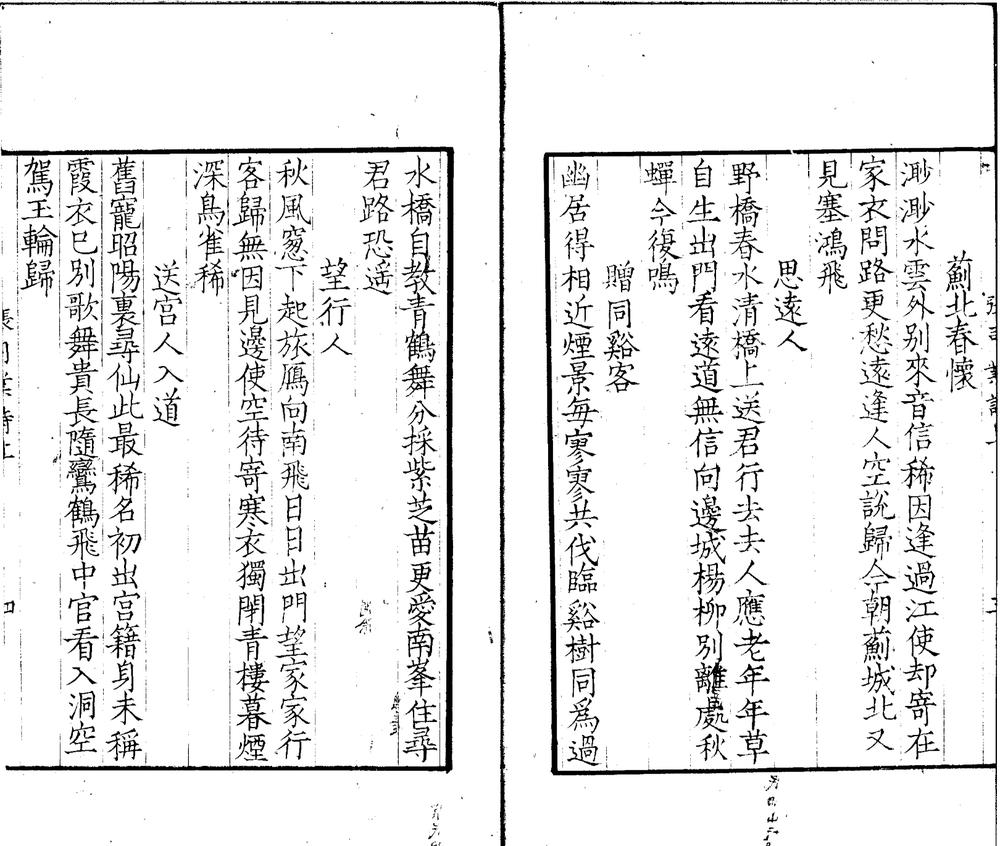 薊北春懷
渺渺水雲外别來音信稀因逢過江使却寄在
家衣問路更愁遠逢人空說歸今朝薊城北又
見塞鴻飛
思遠人
野橋春水清橋上送君行去去人應老年年草
自生出門看遠道無信向邊城楊柳別離處秋
蟬今復鳴
贈同谿客
幽居得相近煙景每寥寥共伐臨谿樹同爲過
水橋自教青鶴舞分採紫芝苗更愛南峯住尋
君路恐遥
望行人
秋風窓下起旅鴈向南飛日日出門望家家行
客歸無因見邊使空待寄寒衣獨閉青樓暮煙
深鳥雀稀
送宫人入道
舊寵昭陽裏尋仙此最稀名初出宫籍身未稱
霞衣巳別歌舞貴長隨鸞鶴飛中官看入洞空
駕王輪歸